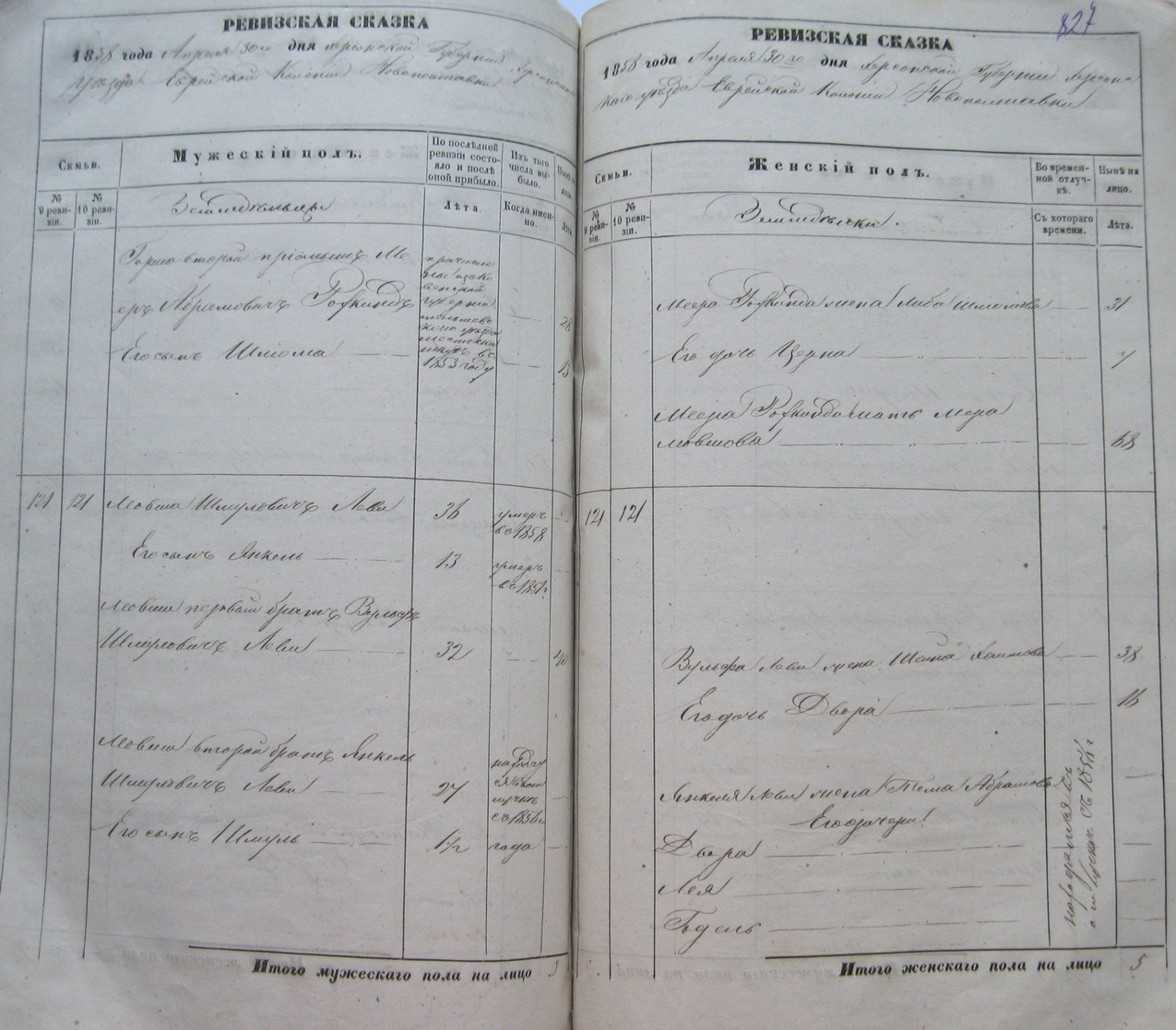 РЕВИЗСКАЯ СКАЗКА
1858 года Апреля 30го дня Херсонской Губернии Херсонскаго
уезда Еврейской Колонии Новополтавки
Семьи.
Мужескій полъ.
По послѣдней ревизіи состояло и послѣ оной прибыло.
Изъ того числа выбыло.
№ 9 ревизіи.
№ 10 ревизіи.
Земледельцы
Лѣта.
Когда именно.
Лѣта.
второй Ме
еръ Абрамовичъ 28
Его сынъ Шлиома 13
1853 году
121 121 Мовша Шмуловичъ Леви 36 умеръ въ 1858
Его сынъ Янкель 13 умеръ въ 1851г.
Мовши первый братъ Вульфъ
Шмуловичъ Леви 32 40
Мовши второй братъ Янкель
Шмулевичъ Леви 27 съ 1856
Его сынъ Шмуль 1 1/2 года
Итого мужескаго пола на лицо 3
827
РЕВИЗСКАЯ СКАЗКА
1858 года Апреля 30го дня Херсонской Губернии Херсонс
каго уезда Еврейской Колонии Новополтавки
Семьи.
Женскій полъ.
Во временной отлучкѣ.
Нынѣ на лицо.
№ 9 ревизіи.
№ 10 ревизіи.
Съ котораго времени.
Лѣта.
Меера жена Либа Шлиомова 31
Его дочь Церна 7
Меера мать Мера
Мовшова 68
121 121
Вульфа Леви жена Шейна Хаимова 38
Его дочь Двора 16
Янкеля Леви жена Тема Абрамова
Его дочери:
Двора
Лея
Годель
находятся въ отлучке съ
Итого женскаго пола на лицо 5